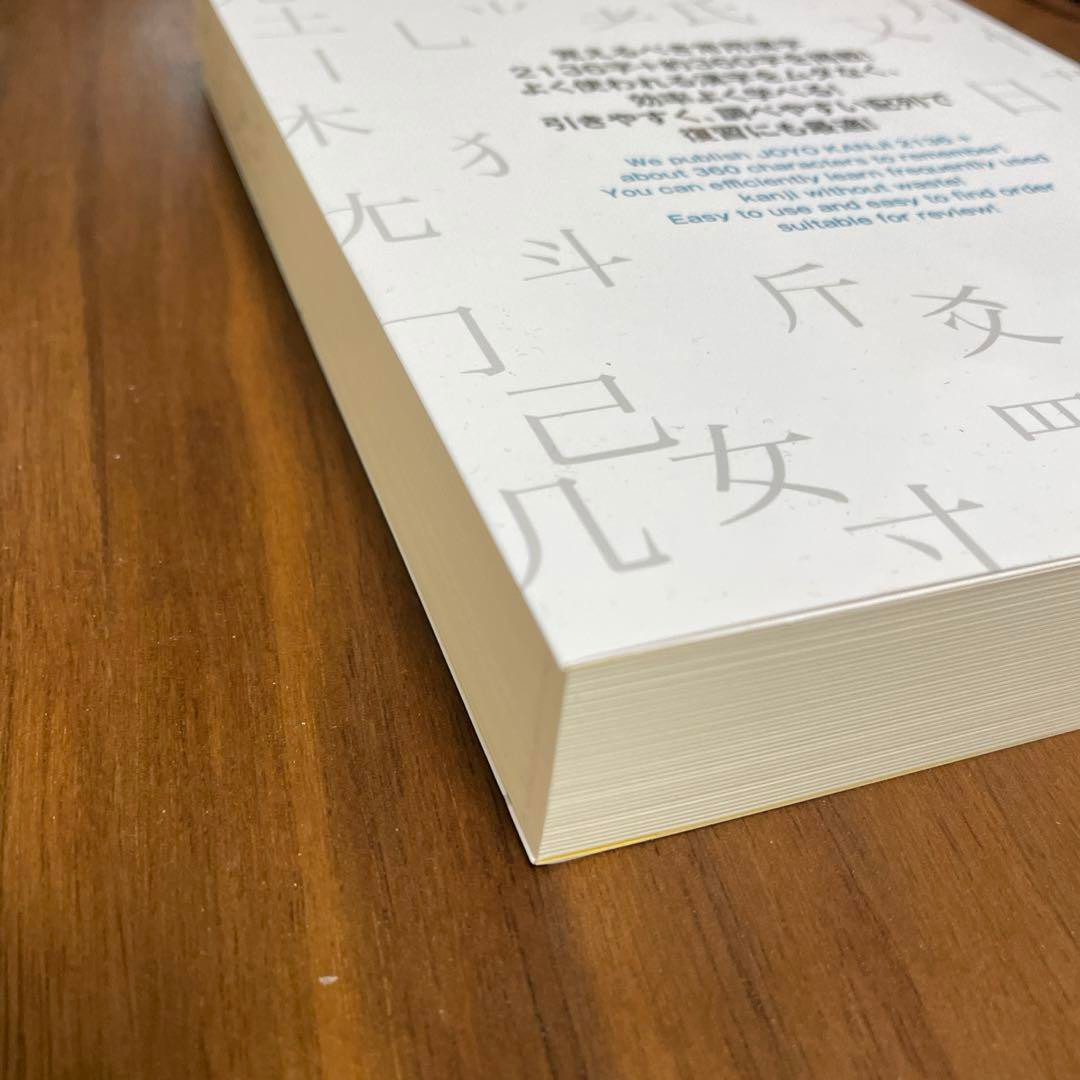 覚えるべき常用漢字
2136字+約360字を掲載!
よく使われる漢字をムダなく、
効率よく学べる!
引きやすく、調べやすい配列で
復習にも最適!
We publish JOYO KANJI 2136 +
about 360 characters to remember!
You can efficiently learn frequently used
kanji without waste!
Easy to use and easy to find order
suitable for review!
土 乚 氏
木 犭 日
尢 斗
冂 斤 爻
己
几 女 寸